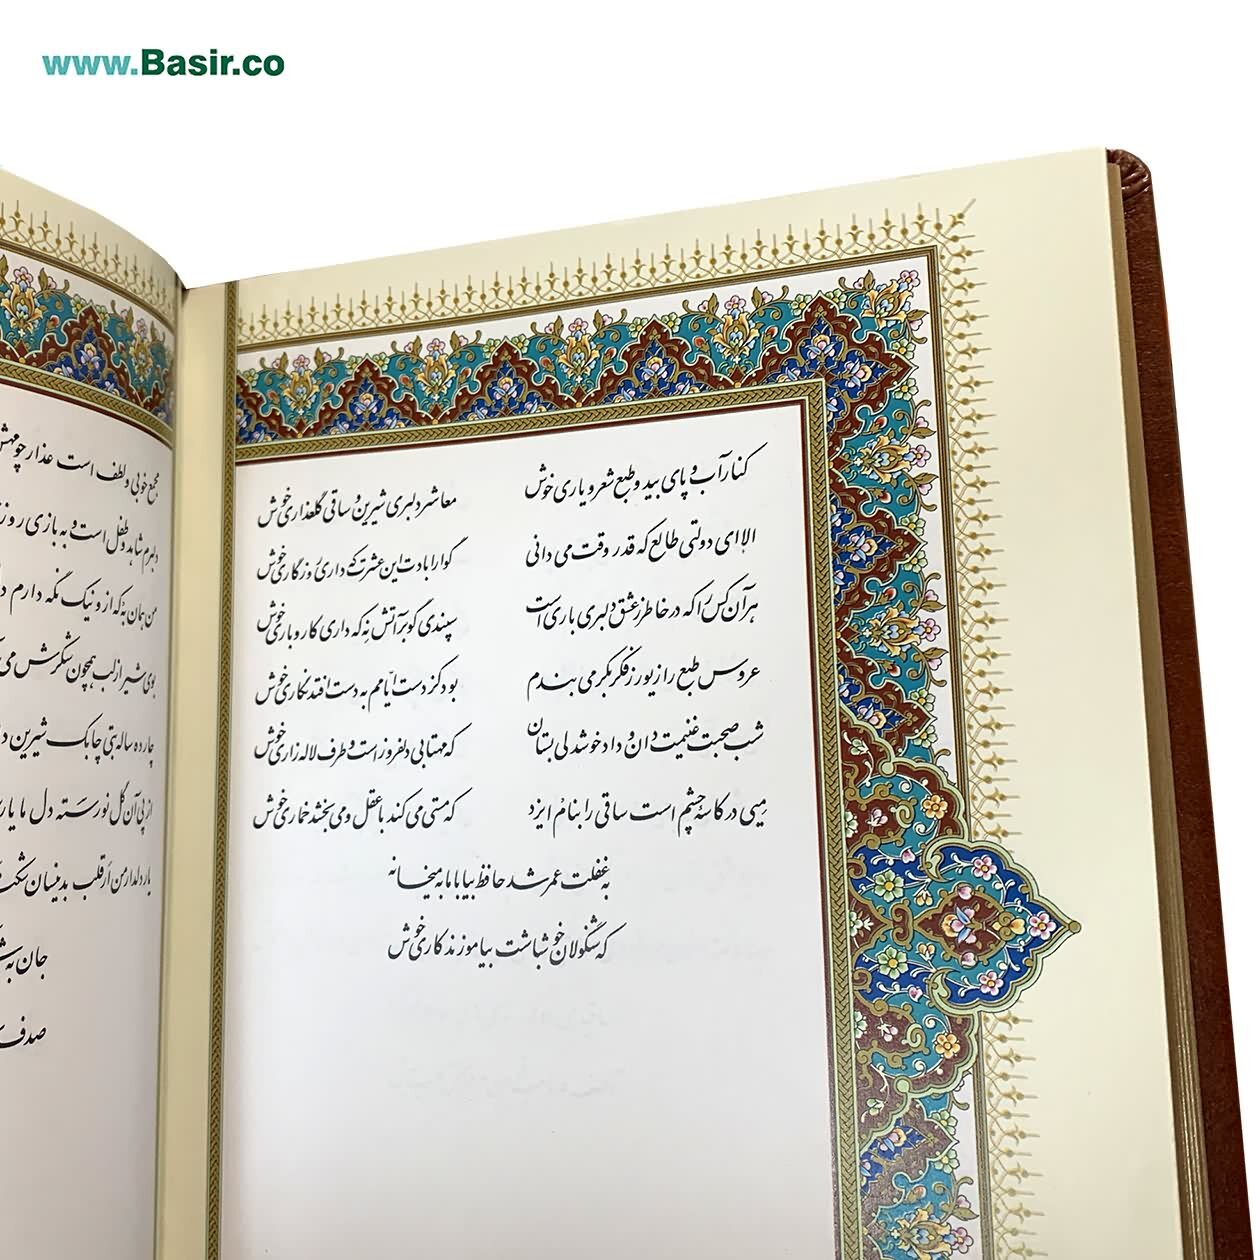 www.Basir.co
کنار آب و پای بید و طبع شعر و یاری خوش
معاشر دلبری شیرین و ساقی گلعذاری خوش
الا ای دولتی طالع که قدر وقت می دانی
گوارا بادت این عشرت که داری روزگاری خوش
هر آن کس را که در خاطر ز عشق دلبری باری است
سپندی گو بر آتش نه که داری کار و باری خوش
عروس طبع را زیور ز فکر بکر می بندم
بود کز دست ایّامم به دست افتد نگاری خوش
شب صحبت غنیمت دان و داد خوشدلی بستان
که مهتابی دلفروز است و طرف لاله زاری خوش
میی در کاسهٔ چشم است ساقی را بنام ایزد
که مستی می کند با عقل و می بخشد خماری خوش
به غفلت عمر شد حافظ بیا با ما به میخانه
که شنگولان خوشباشت بیاموزند کاری خوش
مجمع خوبی و لطف است عذار چو مهش
دلبرم شاهد و طفل است و به بازی روز
من همان به که از و نیک نگه دارم
بوی شیر از لب همچون شکرش می
چارده ساله بتی چابک شیرین
از پی آن گل نورسته دل ما
یار دلدار من ار قلب بدینسان
جان به
صدف